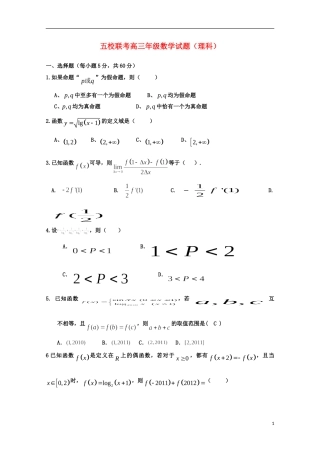 五校联考高三年级数学试题（理科）
一、选择题（每小题 5 分，共 60 分）
1.如果命题“p或q”为假命题，则（ ）
A、p,q中至多有一个为假命题 B、p,q均为假命题
C、p,q均为真命题 D、p,q中至少有一个为真命题
2.函数 y=√(lg(x-1)) 的定义域是（ ）
A、(1,2) B、[2,+∞) C、(2,+∞) D、(1,+∞)
3.已知函数 f(x) 可导，则 等于（ ）.
A. B. C. D.
4.设 ，则（ ）
A． 0<P<1 B． 1<P<2
C． 2<P<3 D． 3<P<4
5. 已知函数 若 a,b,c 互
不相等，且 f(a)=f(b)=f(c)，则 a+b+c 的取值范围是( C )
A．(1,2010) B．(1,2011) C．(2,2011) D．[2,2011]
6 已知函数 f(x) 是定义在 R 上的偶函数，若对于 x≥0，都有 f(x+2)=f(x)，且当
x∈[0,2)时，f(x)=log₂(x+1)，则 f(-2011)+f(2012)=（ ）
1